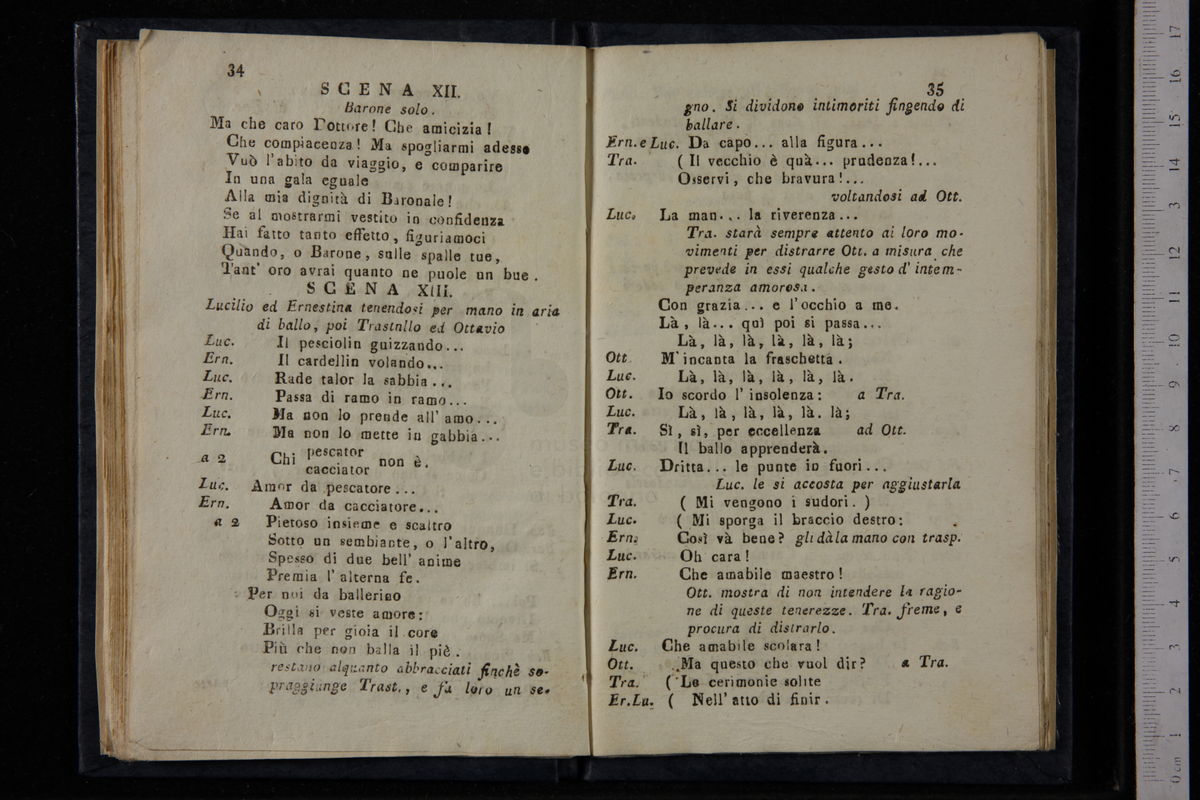 34
SCENA XII.
Barone solo.
Ma che caro Dottore! Che amicizia!
Che compiacenza! Ma spogliarmi adesso
Vuò l'abito da viaggio, e comparire
In una gala eguale
Alla mia dignità di Baronale!
Se al mostrarmi vestito in confidenza
Hai fatto tanto effetto, figuriamoci
Quando, o Barone, sulle spalle tue,
Tant' oro avrai quanto ne puole un bue.
SCENA XIII.
Lucilio ed Ernestina tenendosi per mano in aria
di ballo, poi Trastnllo ed Ottavio
Luc. Il pesciolin guizzando...
Ern. Il cardellin volando...
Luc. Rade talor la sabbia...
Ern. Passa di ramo in ramo...
Luc. Ma non lo prende all' amo...
Ern. Ma non lo mette in gabbia...
a 2 Chi pescator
cacciator non è.
Luc. Amor da pescatore...
Ern. Amor da cacciatore...
a 2 Pietoso insieme e scaltro
Sotto un sembiante, o l'altro,
Spesso di due bell' anime
Premia l' alterna fe.
Per noi da ballerino
Oggi si veste amore:
Brilla per gioia il core
Più che non balla il piè.
restano alquanto abbracciati finchè so-
praggiunge Trast., e fa loro un se-
35
gno. Si dividono intimoriti fingendo di
ballare.
Ern. e Luc. Da capo... alla figura...
Tra. (Il vecchio è quà... prudenza!...
Osservi, che bravura!...
voltandosi ad Ott.
Luc. La man... la riverenza...
Tra. starà sempre attento ai loro mo-
vimenti per distrarre Ott. a misura che
prevede in essi qualche gesto d' intem-
peranza amorosa.
Con grazia... e l'occhio a me.
Là, là... quì poi si passa...
Là, là, là, là, là, là;
Ott M'incanta la fraschetta.
Luc. Là, là, là, là, là, là.
Ott. Io scordo l' insolenza: a Tra.
Luc. Là, là, là, là, là. là;
Tra. Sì, sì, per eccellenza ad Ott.
Il ballo apprenderà.
Luc. Dritta... le punte in fuori...
Luc. le si accosta per aggiustarla
Tra. (Mi vengono i sudori. )
Luc. (Mi sporga il braccio destro:
Ern. Così và bene? gli dà la mano con trasp.
Luc. Oh cara!
Ern. Che amabile maestro!
Ott. mostra di non intendere la ragio-
ne di queste tenerezze. Tra. freme, e
procura di distrarlo.
Luc. Che amabile scolara!
Ott. Ma questo che vuol dir? a Tra.
Tra. (Le cerimonie solite
Er.Lu. ( Nell' atto di finir.